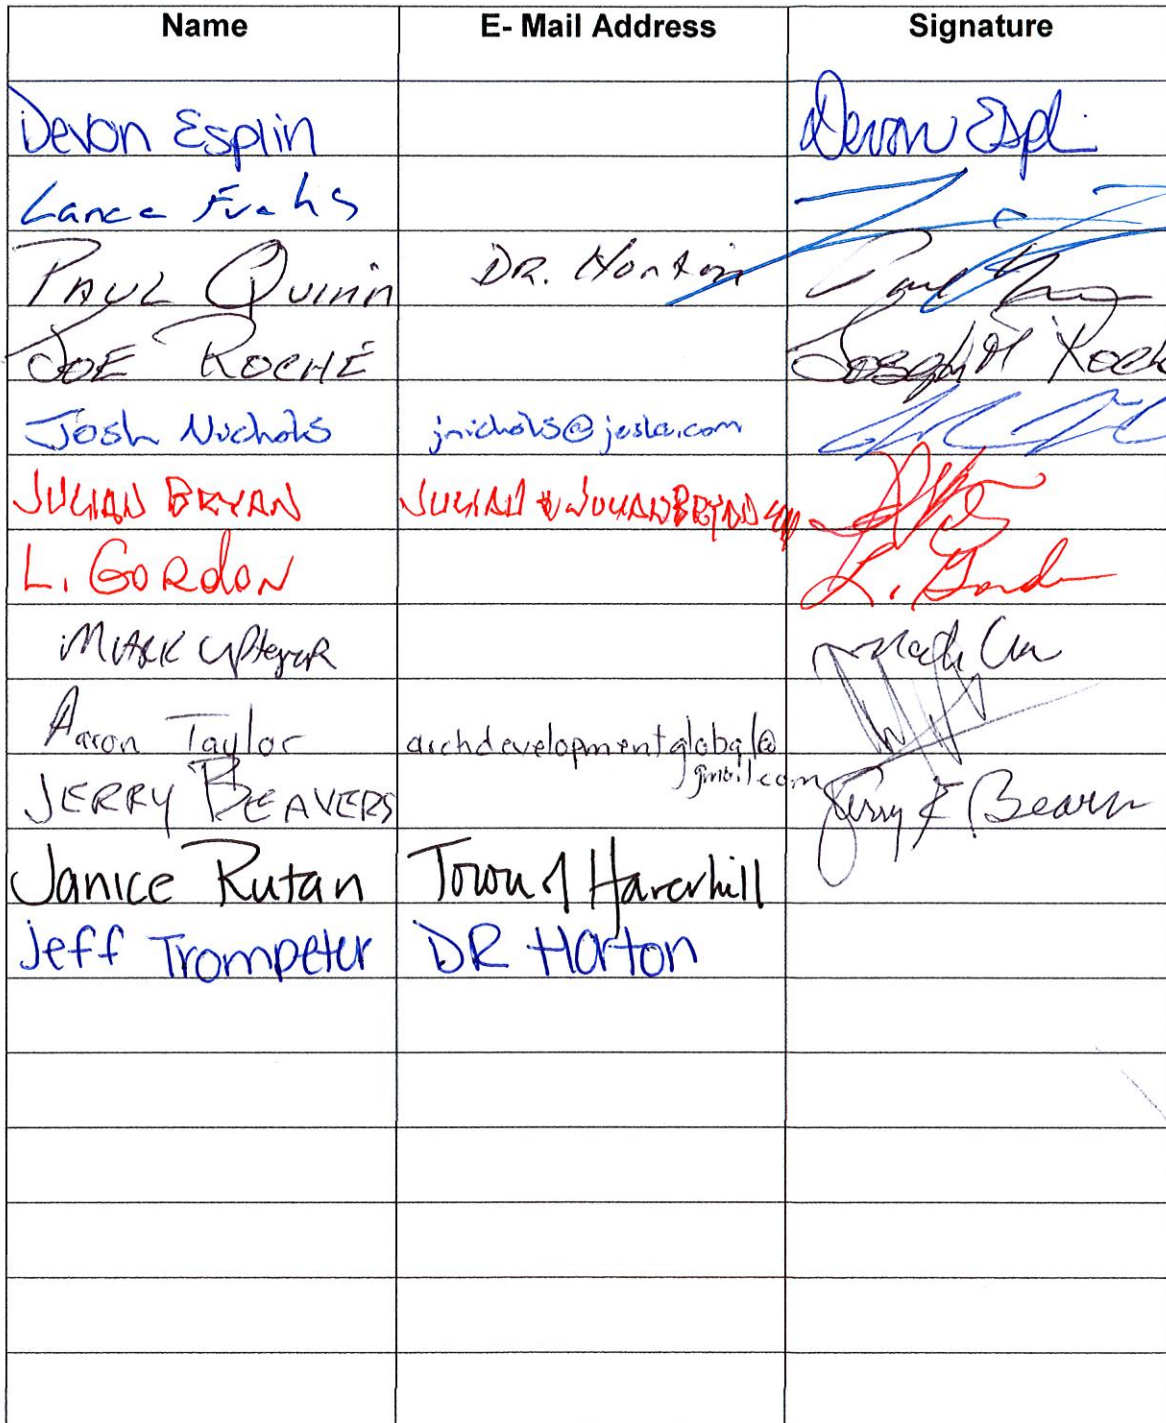 Name E- Mail Address Signature
Devon Esplin Devon Espl
Lance Fuchs
PAUL QUINN DR. Horton Paul
JOE ROCHE Joseph M Roch
Josh Nichols jnichols@jesla.com
JULIAN BRYAN
L. GORDON L. Gord
MARK
Aaron Taylor archdevelopmentglobal@
gmail.com
JERRY BEAVERS Jerry F Beavers
Janice Rutan Town of Haverhill
Jeff Trompeter DR Horton